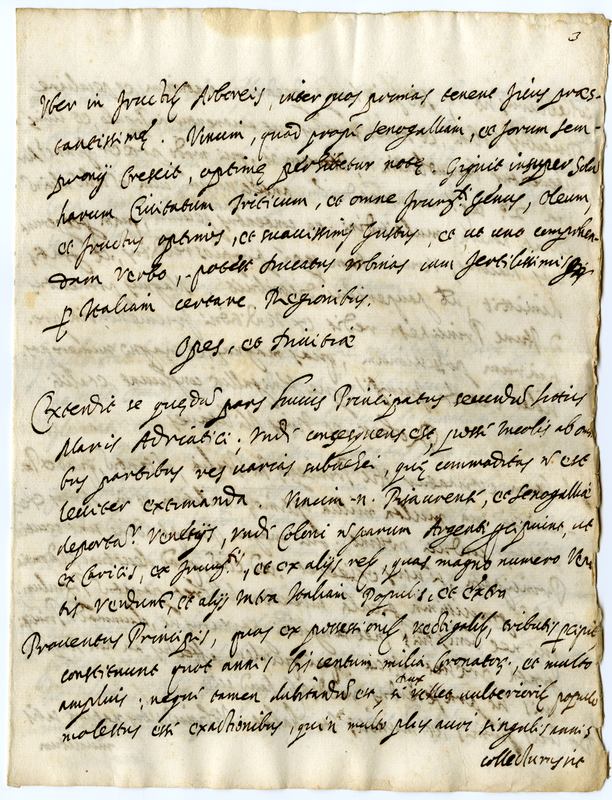 3
Uber in fructibus Arboreis, inter quos primas tenent ficus præs-
tantissimę. Vinum, quod propè Senogalliam, et forum Sem-
pronij Crescit, optimę perhibetur notę. Gignit insuper Solu
harum Civitatum Triticum, et omne frugum Genus, Oleum,
et fructus optimos, et suavissimi Gustus, et ut uno comprehen-
dam verbo, potest Ducatus Urbinas cum fertilissimis
per Italiam certare Regionibus.
Opes, et Divitiæ
Extendit se quędam pars huius Principatus secundum littus
Maris Adriatici; undè consequens est, posse incolis ab om
bus partibus res varias subvehi, quę commoditas non est
leviter extimanda. Vinum .n. Pisaurense, et Senogalliæ
deportatur Venetijs, undè Coloni non parum Argenti percipiunt, ut
ex Caricis, ex frugibus, et ex alijs rebus, quas magno numero Vene
tis vendunt, et alijs intra Italiam Populis, et extra
Proventus Principis, quos ex possessionibus, vectigalibus, tributis percipit
constituunt quot annis bis centum milia Coronatorum, et multo
ampliùs; nequè tamen dubitandum est, si Dux vellet ulterioribus populo
molestus esse exactionibus, quin multo plus auri singulis annis
collecturus sit